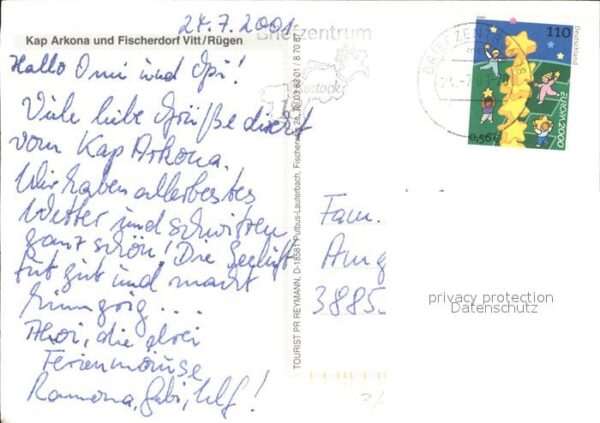 24.7.2001
Kap Arkona und Fischerdorf Vitt/Rügen
Hallo Omi und Opi!
Viele liebe Grüße direkt
vom Kap Arkona.
Wir haben allerbestes
Wetter und schwitzen
ganz schön! Die Seeluft
tut gut und macht
hungrig...
Ahoi, die drei
Ferienmäuse
Ramona, Gabi, Ulf!
Briefzentrum
Rostock
TOURIST PR REYMANN, D-18581 Putbus-Lauterbach, Fischerweg
110
Deutschland
EUROPA 2000
0,56€
BRIEFZENTRUM 18
Fam.
Am
3885
privacy protection
Datenschutz